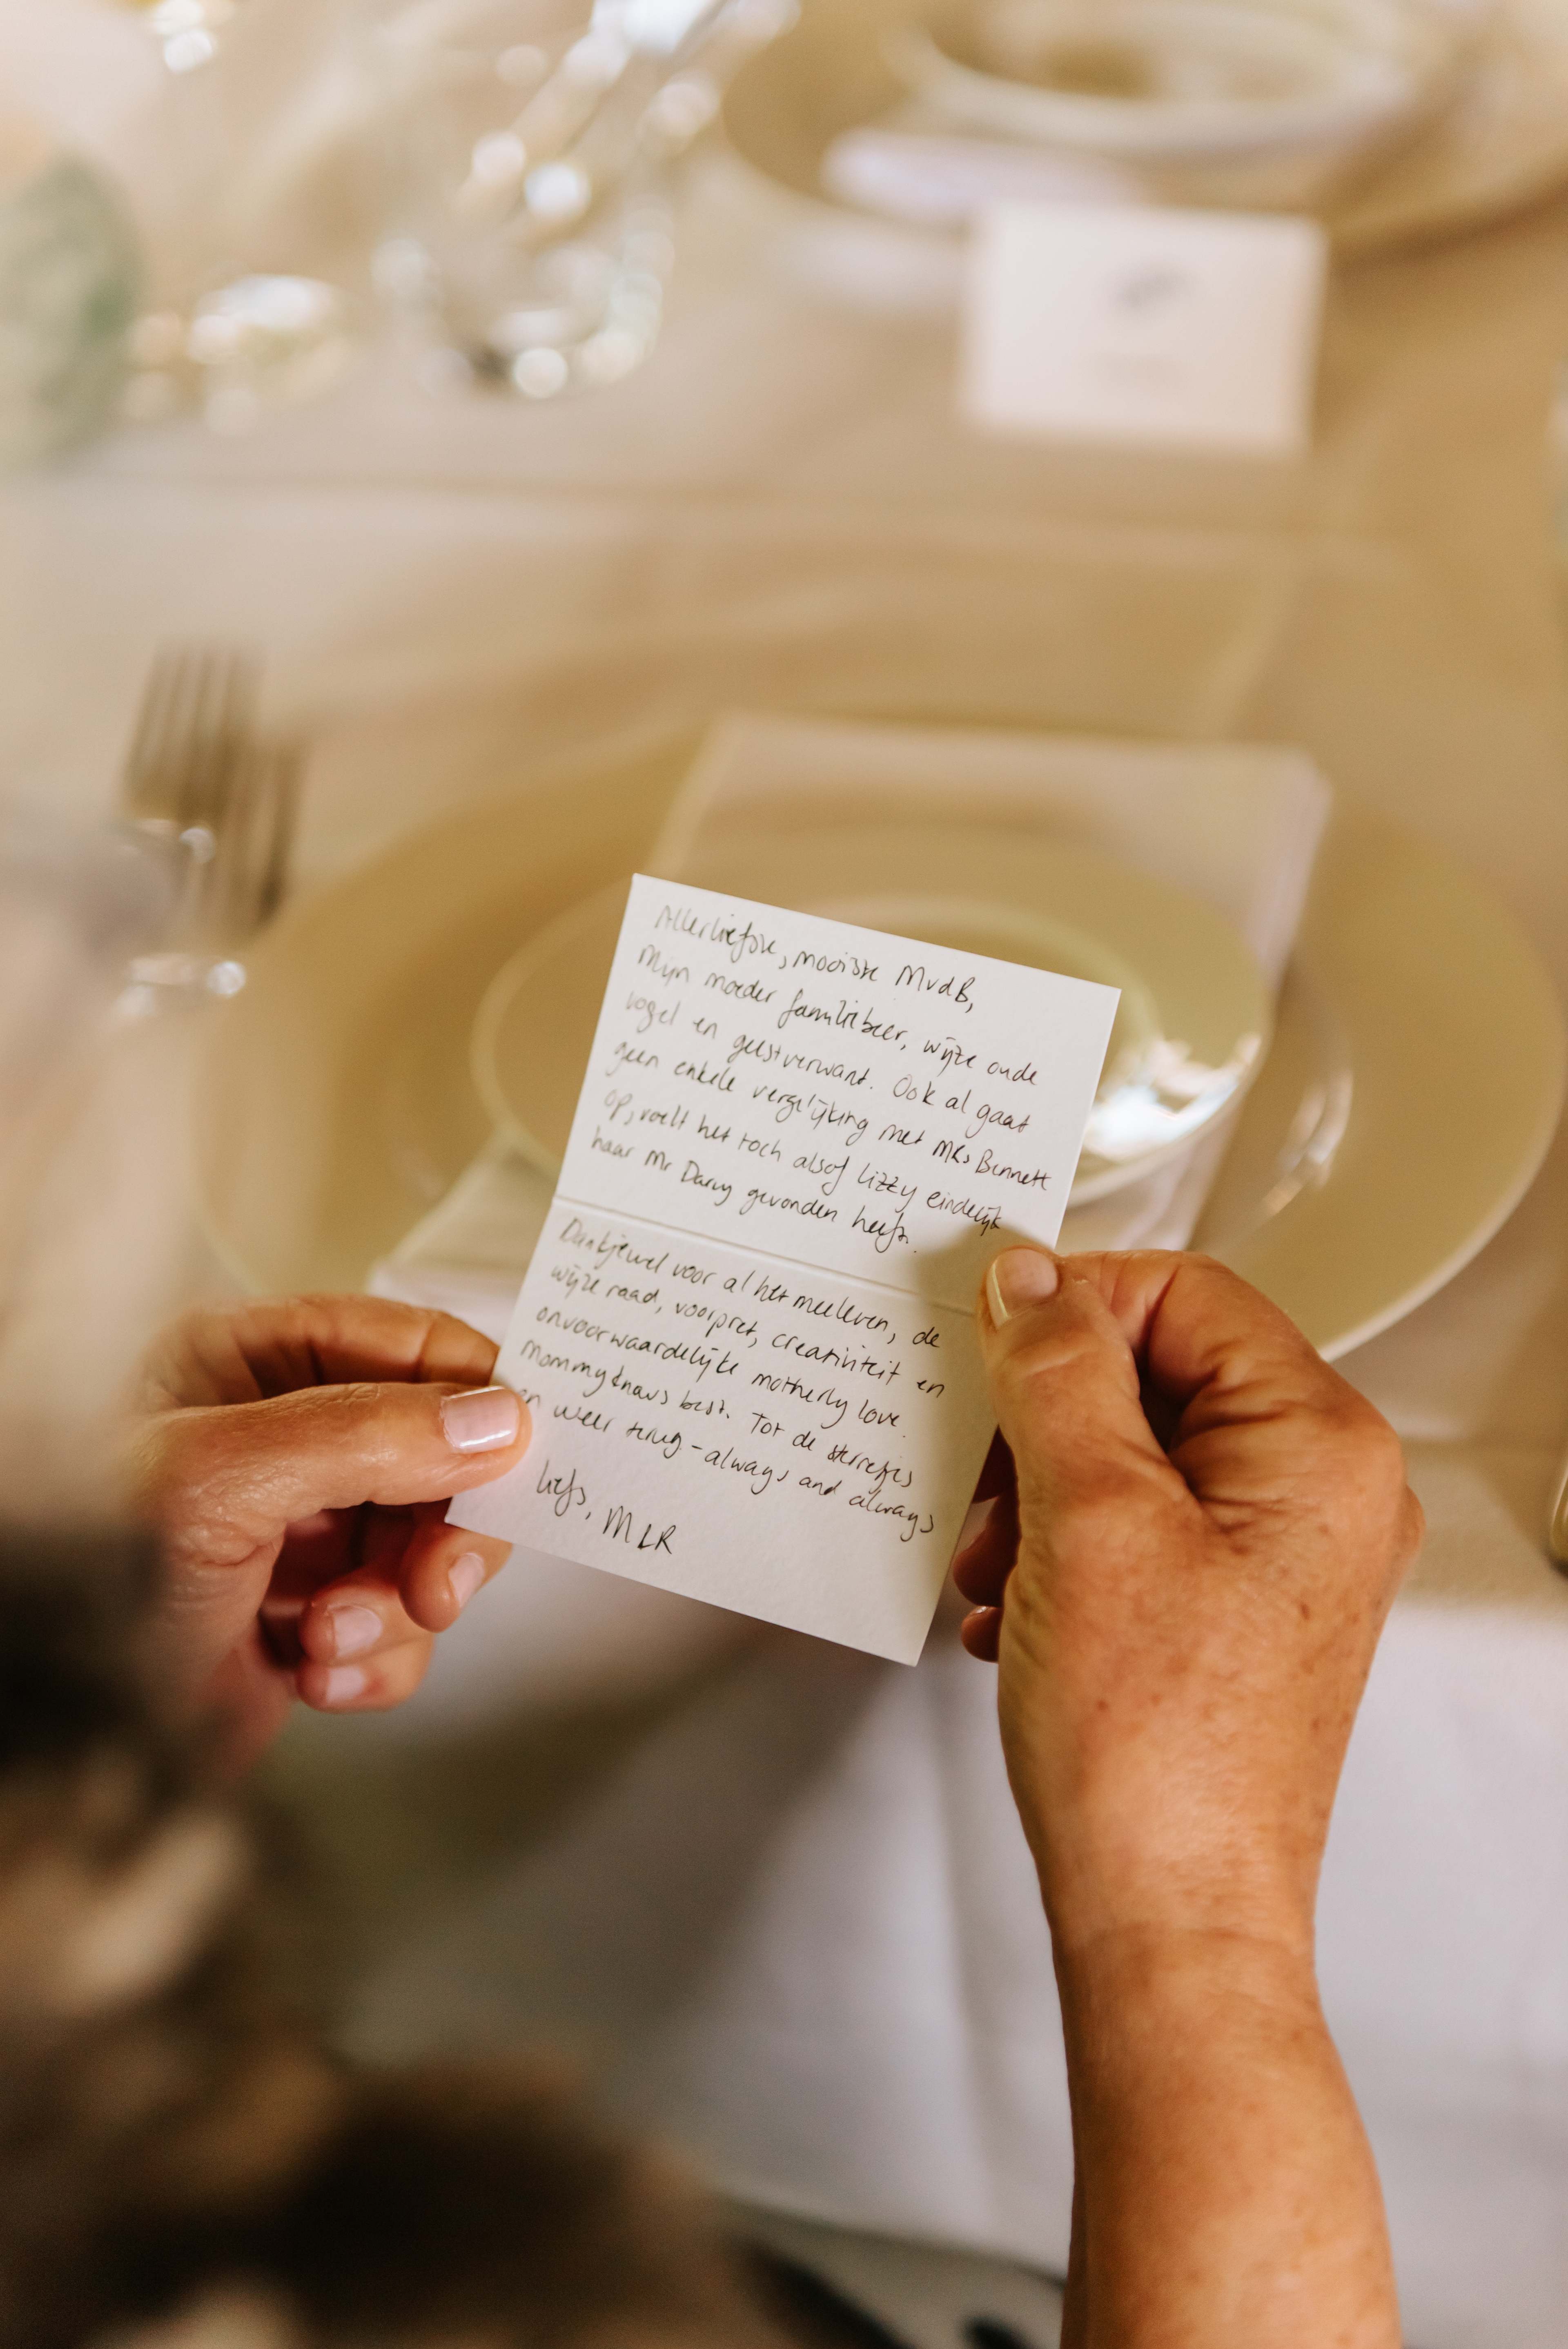 Allerliefste, mooiste MvdB,
Mijn moeder familiebeer, wijze oude
vogel en geestverwant. Ook al gaat
geen enkele vergelijking met MRs Bennett
op, voelt het toch alsof Lizzy eindelijk
haar Mr Darcy gevonden heeft.
Dankjewel voor al het meeleven, de
wijze raad, voorpret, creativiteit en
onvoorwaardelijke motherly love.
Mommy knows best. Tot de sterretjes
en weer terug - always and always
liefs, MLR